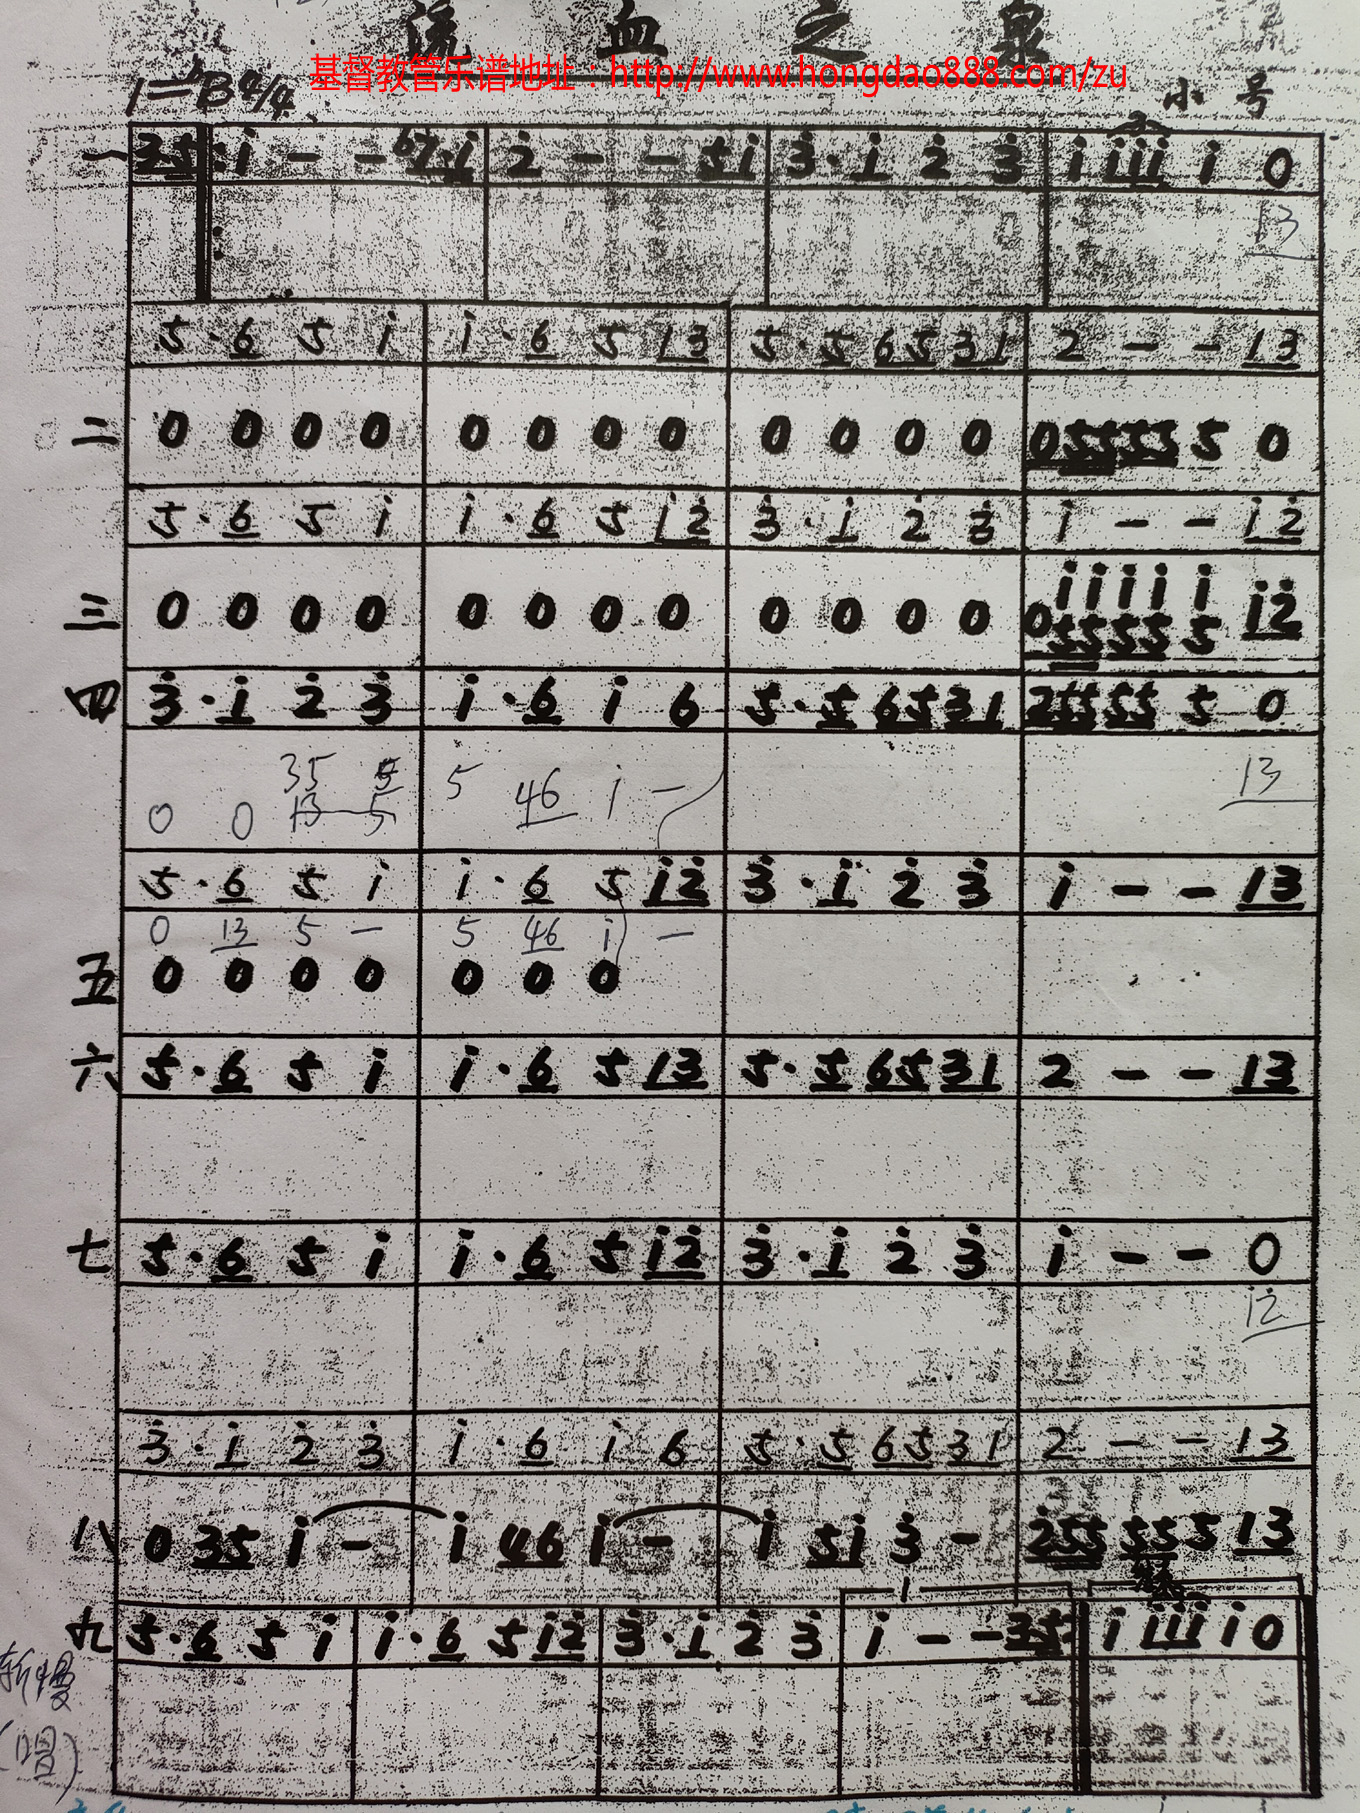 流血之泉
基督教管乐谱地址：http://www.hongdao888.com/zu
1=♭B 4/4
小号
一 35 i - - ♭7·i 2̇ - - 5i 3̇·i 2̇ 3̇ i iii i 0
13
5·6 5 i i·6 5 13 5·5 65 31 2 - - 13
二 0 0 0 0 0 0 0 0 0 0 0 0 05555 5 0
5·6 5 i i·6 5 i2̇ 3̇·i 2̇ 3̇ i - - i2̇
iiii i
三 0 0 0 0 0 0 0 0 0 0 0 0 05555 5 i2̇
四 3̇·i 2̇ 3̇ i·6 i 6 5·5 65 31 255 55 5 0
35 5 5 46 i - 13
0 0 13 5
5·6 5 i i·6 5 i2̇ 3̇·i 2̇ 3̇ i - - 13
0 13 5 - 5 46 i -
五 0 0 0 0 0 0 0
六 5·6 5 i i·6 5 13 5·5 65 31 2 - - 13
七 5·6 5 i i·6 5 i2̇ 3̇·i 2̇ 3̇ i - - 0
i2̇
3̇·i 2̇ 3̇ i·6 i 6 5·5 65 31 2 - - 13
八 0 35 i - i 46 i - i 5i 3̇ - 255 55 5 13
1
九 5·6 5 i i·6 5 i2̇ 3̇·i 2̇ 3̇ i - - 35 i iii i 0
渐慢
(唱)